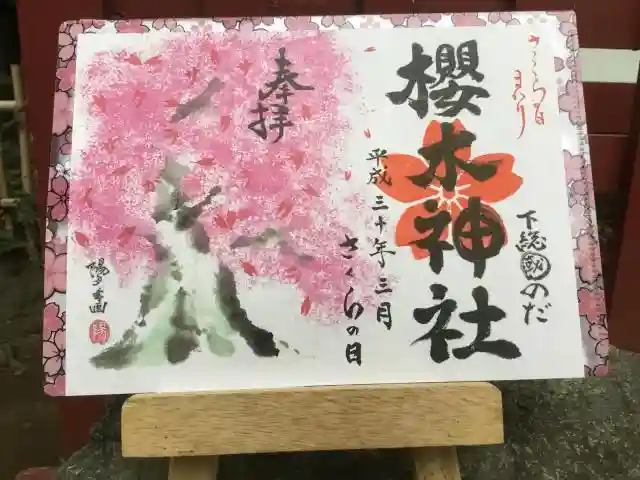 さくら日
まつり
櫻木神社
下総国のだ
奉拝
平成三十年三月
さくらの日
陽